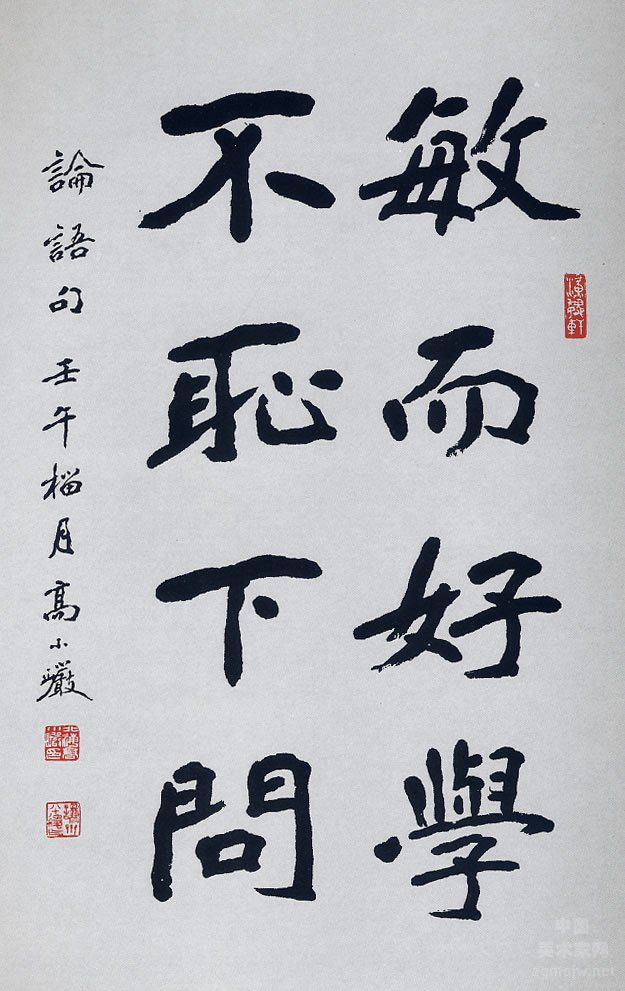 敏而好學
不恥下問
論語句 壬午榴月 高小巖
中国
美术家网
zgmsjw.net